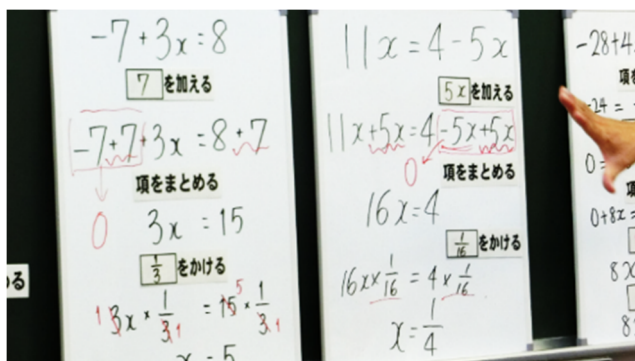 -7+3x=8
7を加える
-7+7+3x=8+7
項をまとめる
0 3x=15
1/3をかける
1 3x×1/3 1=15 5×1/3 1
x=5
11x=4-5x
5xを加える
11x+5x=4-5x+5x
0
項をまとめる
16x=4
1/16をかける
16x×1/16=4×1/16
x=1/4
-28+4
項
-24=
0=
0+8x=
8x
8